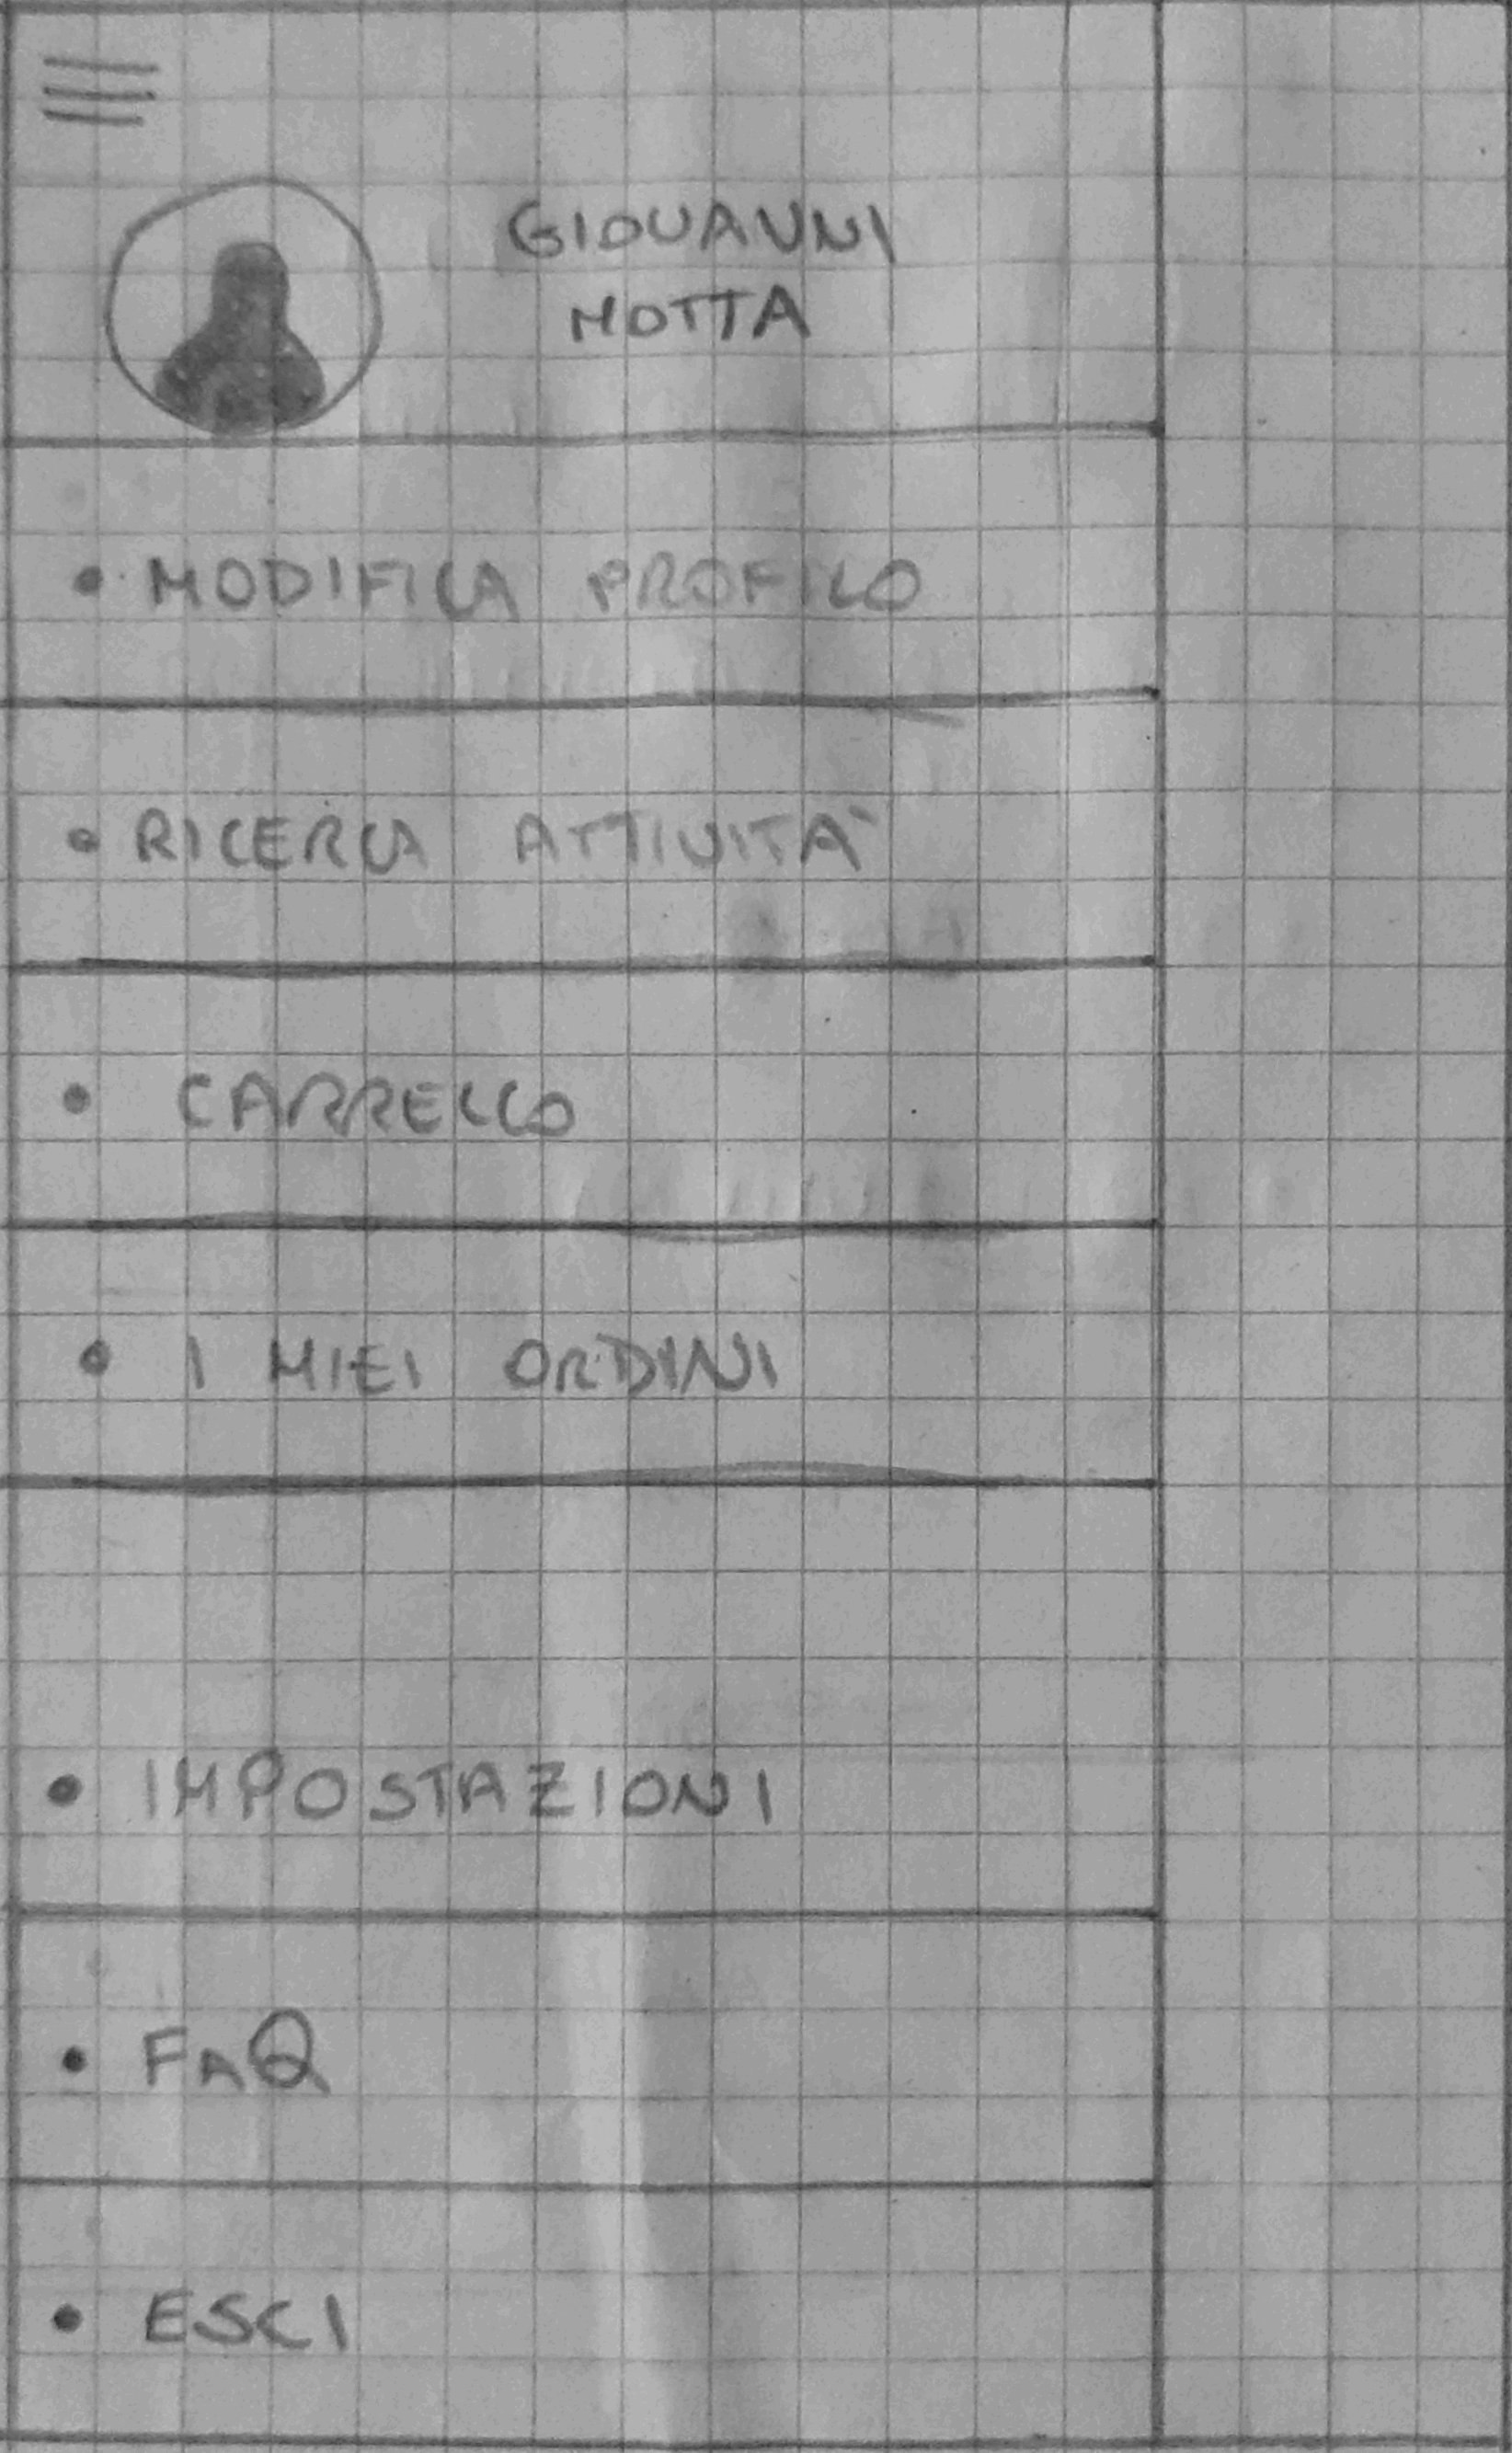 GIOVANNI
MOTTA
• MODIFICA PROFILO
• RICERCA ATTIVITA'
• CARRELLO
• I MIEI ORDINI
• IMPOSTAZIONI
• FAQ
• ESCI